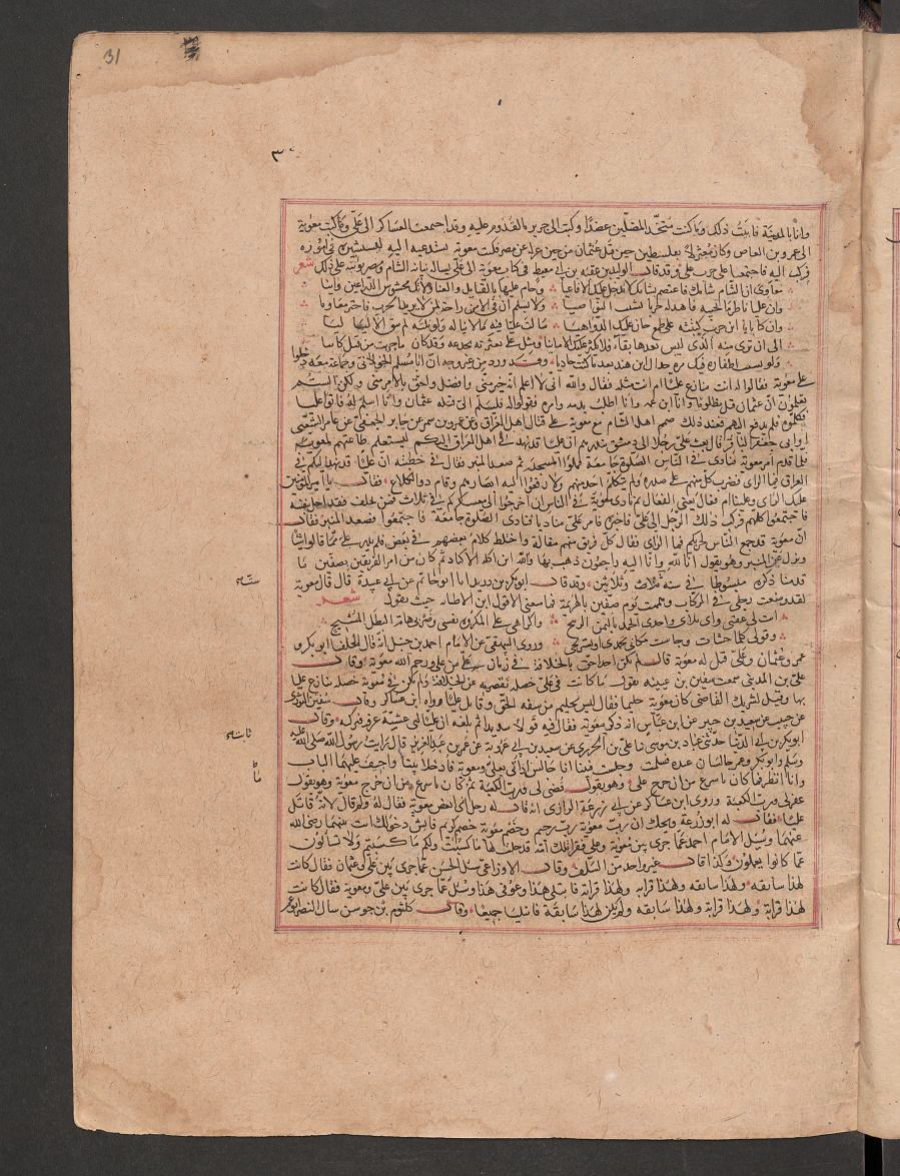 31
٣٠
وانا بالمدينة فابيت ذلك وما كنت متخذ المضلين عضدا وكتب الى جرير بالقدوم عليه وقد اجتمعت العساكر الى علي وكتب معوية
الى عمرو بن العاص وكان معتزلا بفلسطين حين قتل عثمان من حين عزله عن مصر فكتب معوية يستدعيه اليه ليستشيره في اموره
فركب اليه فاجتمعا على حرب علي وقد قال الوليد بن عقبه بن ابي معيط في كتاب معوية الى علي يساله نيابة الشام ومصر يونبه على ذلك شعر
معاوي ان الشام شامك فاعتصم بشامك لا تدخل عليك الافاعيا وحام عليها بالقنابل والقنا ولا تك محشوش الذراعين وانيا
وان عليا ناظر ما تجيبه فاهد له حربا تشيب النواصيا والا فسلم ان في الامن راحة لمن لا يريد الحرب فاختر معاويا
وان كتابا يا ابن حرب كتبته على طمع جان عليك الدواهيا سالت عليا فيه ما لا تناله ولو نلته لم يبق الا لياليا
الى ان ترى منه الذي ليس بعدها بقاء فلا تكثر عليك الامانيا ومثل علي تغتره بخدعة وقد كان ما جربت من قبل كافيا
ولو نشبت اظفاره فيك مرة حداك ابن هند بعد ما كنت حاديا وقد ورد من غير وجه ان ابا مسلم الخولاني وجماعة معه دخلوا
على معوية فقالوا له انت تنازع عليا ام انت مثله فقال والله اني لا اعلم انه خير مني وافضل واحق بالامر مني ولكن الستم
تعلمون ان عثمان قتل مظلوما وانا ابن عمه وانا اطلب بدمه وامره فقولوا له فليسلم الي قتلة عثمان وانا اسلم له فاتوا عليا
فكلموه فلم يدفع اليهم فعند ذلك صمم اهل الشام مع معوية على قتال اهل العراق وعن عمرو بن شمر عن جابر الجعفي عن عامر الشعبي
او ابي جعفر الباقر قال بعث علي رجلا الى دمشق ينذرهم ان عليا قد نهد في اهل العراق اليكم ليستعلم طاعتهم لمعوية
فلما قدم امر معوية فنودي في الناس الصلوة جامعة فملؤا المسجد ثم صعد المنبر فقال في خطبته ان عليا قد نهد اليكم في
العراق فما الراي فضرب كل منهم على صدره ولم يتكلم احد منهم ولا رفعوا اليه ابصارهم وقام ذو الكلاع فقال يا امير المؤمنين
عليك الراي وعلينا ام فعال يعني الفعال ثم نادى معوية في الناس ان اخرجوا الى معسكركم في ثلاث فمن تخلف فقد احل بنفسه
فاجتمعوا كلهم فركب ذلك الرجل الى علي فاخبره فامر علي مناديا فنادى الصلوة جامعة فاجتمعوا فصعد المنبر فقال
ان معوية قد جمع الناس لحربكم فما الراي فقال كل فريق منهم مقالة واختلط كلام بعضهم في بعض فلم يدر علي مما قالوا شيئا
ونزل عن المنبر وهو يقول انا لله وانا اليه راجعون ذهب بها والله ابن اكلة الاكباد ثم كان من امر الفريقين بصفين ما
قدمنا ذكره مبسوطا في سنه ثلاث وثلاثين وقد قال ابو بكر بن دريد انا ابو حاتم عن ابي عبيدة قال قال معوية
لقد وضعت رجلي في الركاب وهممت يوم صفين بالهزيمة فما منعني الا قول ابن الاطنابه حيث يقول شعر
ابت لي عفتي وابى بلائي واخذي الحمد بالثمن الربيح واكراهي على المكروه نفسي وضربي هامة البطل المشيح
وقولي كلما جشأت وجاشت مكانك تحمدي او تستريحي وروى البيهقي عن الامام احمد بن حنبل انه قال الخلفا ابو بكر و
عمر وعثمان وعلي قيل له معوية قال لم يكن احد احق بالخلافة في زمان علي من علي ورحم الله معوية وقال
علي بن المديني سمعت سفين بن عيينه يقول ما كانت في علي خصلة تقصر به عن الخلافة ولم يكن في معوية خصله ينازع عليا
بها وقيل لشريك القاضي كان معوية حليما فقال ليس بحليم من سفه الحق وقاتل عليا رواه ابن عساكر وقال سفين الثوري
عن حبيب عن سعيد بن جبير عن ابن عباس انه ذكر معوية فقال فيه قولا شديدا ثم بلغه انه لبى عشية عرفة فتركه وقال
ابو بكر بن ابي الدنيا حدثني عباد بن موسى ثنا علي بن الجزري عن سعيد بن ابي عروبة عن عمر بن عبد العزيز قال رايت رسول الله صلى الله عليه
وسلم وابو بكر وعمر جالسان عنده فسلمت وجلست فبينا انا جالس اذ اتي بعلي ومعوية فادخلا بيتا واجيف عليهما الباب
وانا انظر فما كان باسرع من ان خرج علي وهو يقول قضي لي ورب الكعبة ثم ما كان باسرع من ان خرج معوية وهو يقول
غفر لي ورب الكعبة وروى ابن عساكر عن ابي زرعة الرازي انه قال له رجل اني ابغض معوية فقال له ولم قال لانه قاتل
عليا فقال له ابو زرعة ويحك ان رب معوية رب رحيم وخصم معوية خصم كريم فايش دخولك انت بينهما رضي الله
عنهما وسئل الامام احمد عما جرى بين معوية وعلي فقرا تلك امة قد خلت لها ما كسبت ولكم ما كسبتم ولا تسالون
عما كانوا يعملون وكذا قال غير واحد من السلف وقال الاوزاعي سئل الحسن عما جرى بين علي وعثمان فقال كانت
لهذا سابقه ولهذا سابقه ولهذا قرابه ولهذا قرابة فابتلي هذا وعوفي هذا وسئل عما جرى بين علي ومعوية فقال كانت
لهذا قرابة ولهذا قرابة ولهذا سابقه ولم يكن لهذا سابقة فابتليا جميعا وقال كلثوم بن جوشن سال النضر ابو عمر